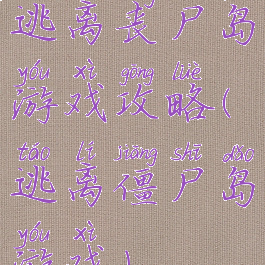 逃离丧尸岛
yóu xì gōng lüè
游戏攻略(
táo lí jiāng shī dǎo
逃离僵尸岛
yóu xì
游戏)